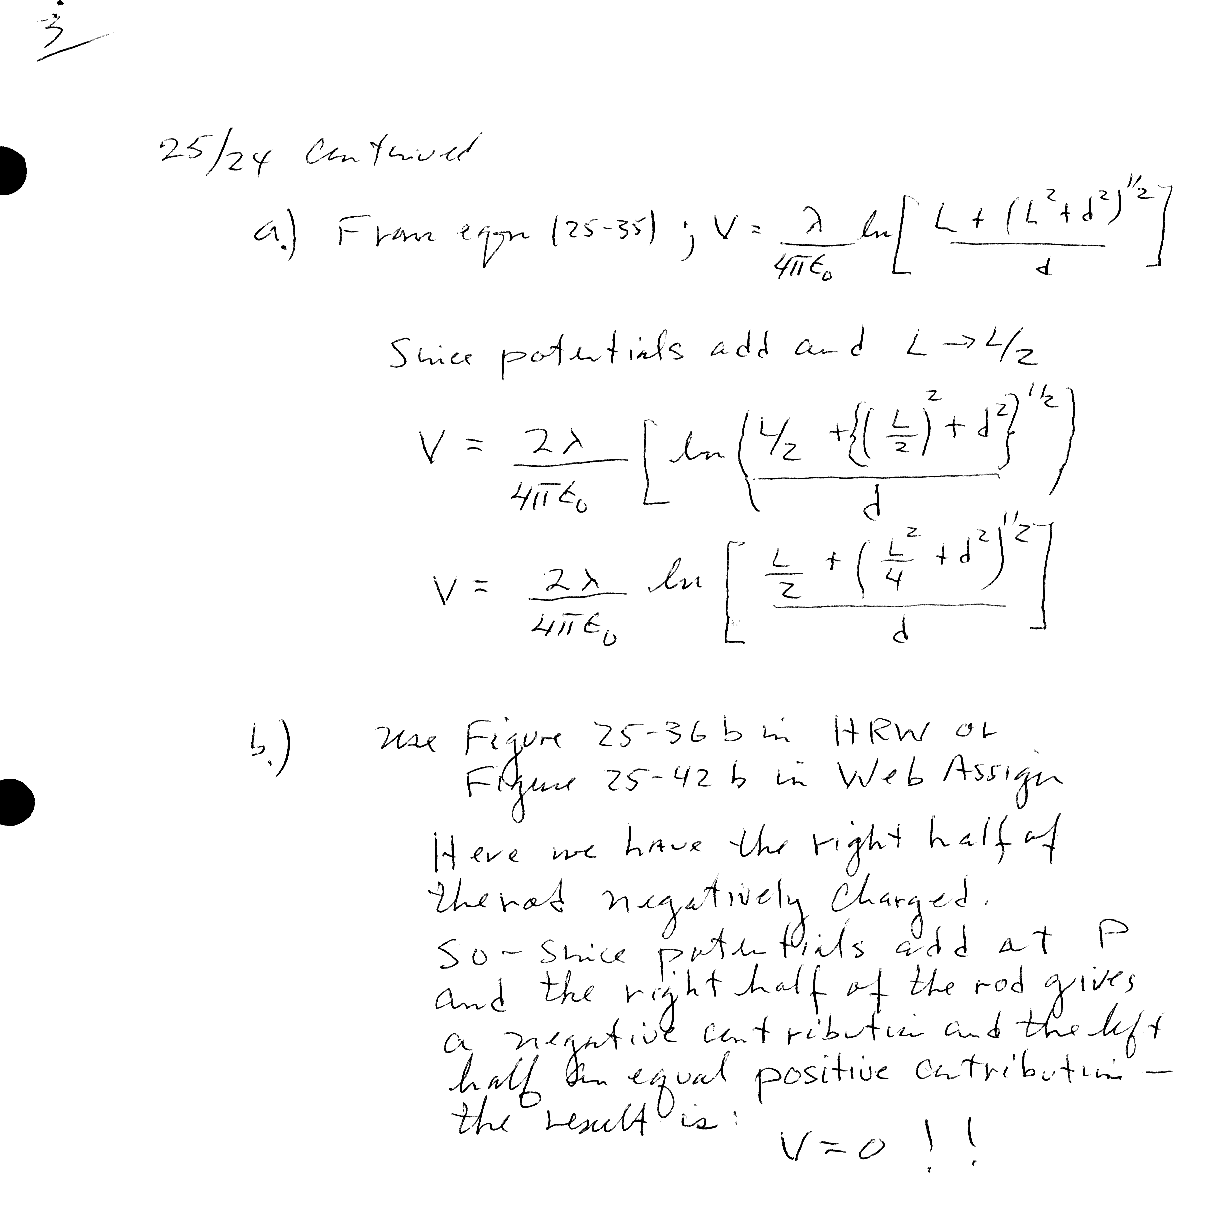 3
25/24 continued
a.) From eqn (25-35) ; V = λ/4πε₀ ln[ (L + (L² + d²)^1/2) / d ]
Since potentials add and L → L/2
V = 2λ/4πε₀ [ ln( (L/2 + {(L/2)² + d²}^1/2) / d )
V = 2λ/4πε₀ ln [ (L/2 + (L²/4 + d²)^1/2) / d ]
b.) Use Figure 25-36 b in HRW or
Figure 25-42 b in Web Assign
Here we have the right half of
the rod negatively charged.
So - since potentials add at P
and the right half of the rod gives
a negative contribution and the left
half an equal positive contribution —
the result is:
V = 0 ! !